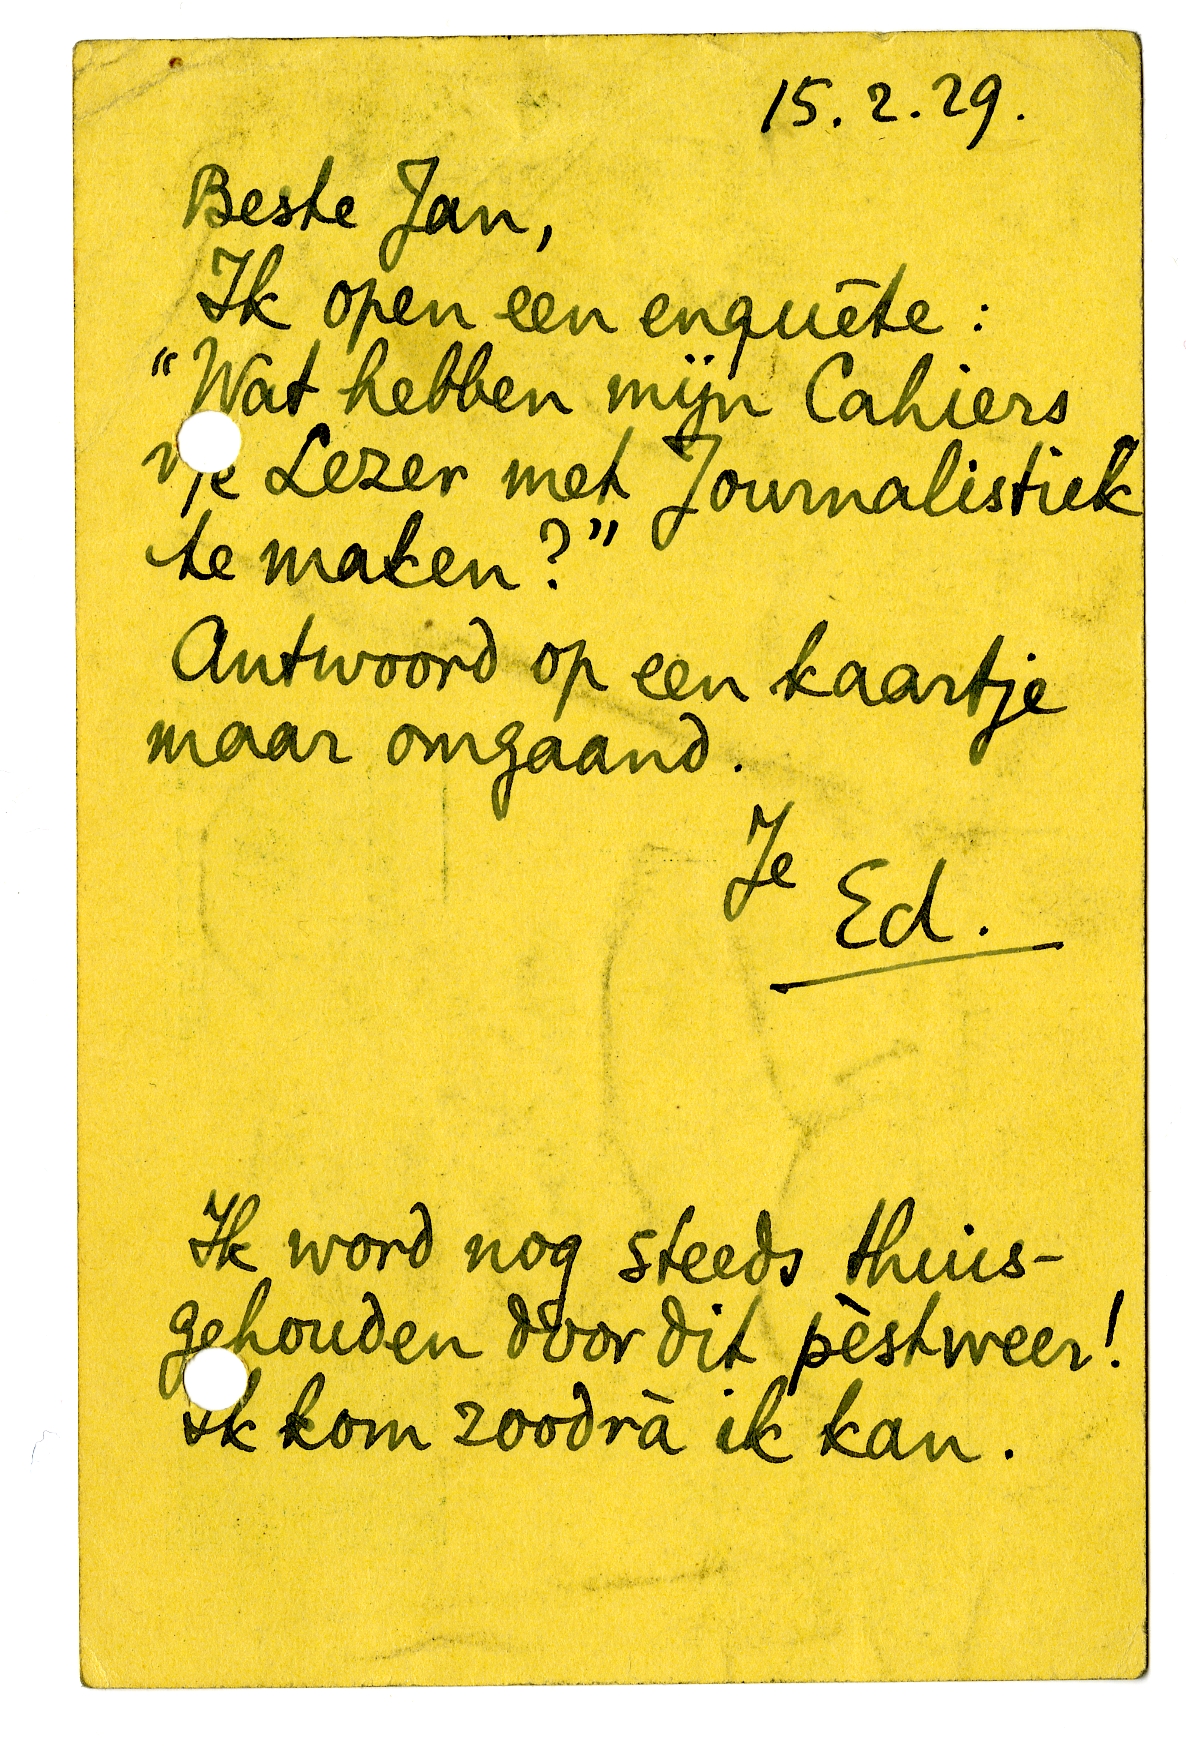 15.2.29.
Beste Jan,
Ik open een enquête :
“Wat hebben mijn Cahiers
Lezer met Journalistiek
te maken?”
Antwoord op een kaartje
maar omgaand.
Je
Ed.
Ik word nog steeds thuis-
gehouden door dit pèstweer!
Ik kom zoodrà ik kan.